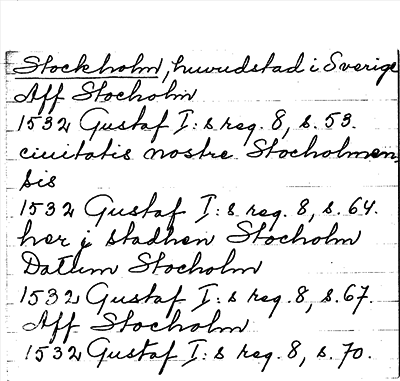 Stockholm, huvudstad i Sverige
Aff Stocholm
1532 Gustaf I:s reg. 8, s. 53.
ciuitatis nostre Stocholmen,
sis
1532 Gustaf I:s reg. 8, s. 64.
her j stadhen Stocholm
Datum Stocholm
1532 Gustaf I:s reg. 8, s. 67.
Aff Stocholm
1532 Gustaf I:s reg. 8, s. 70.